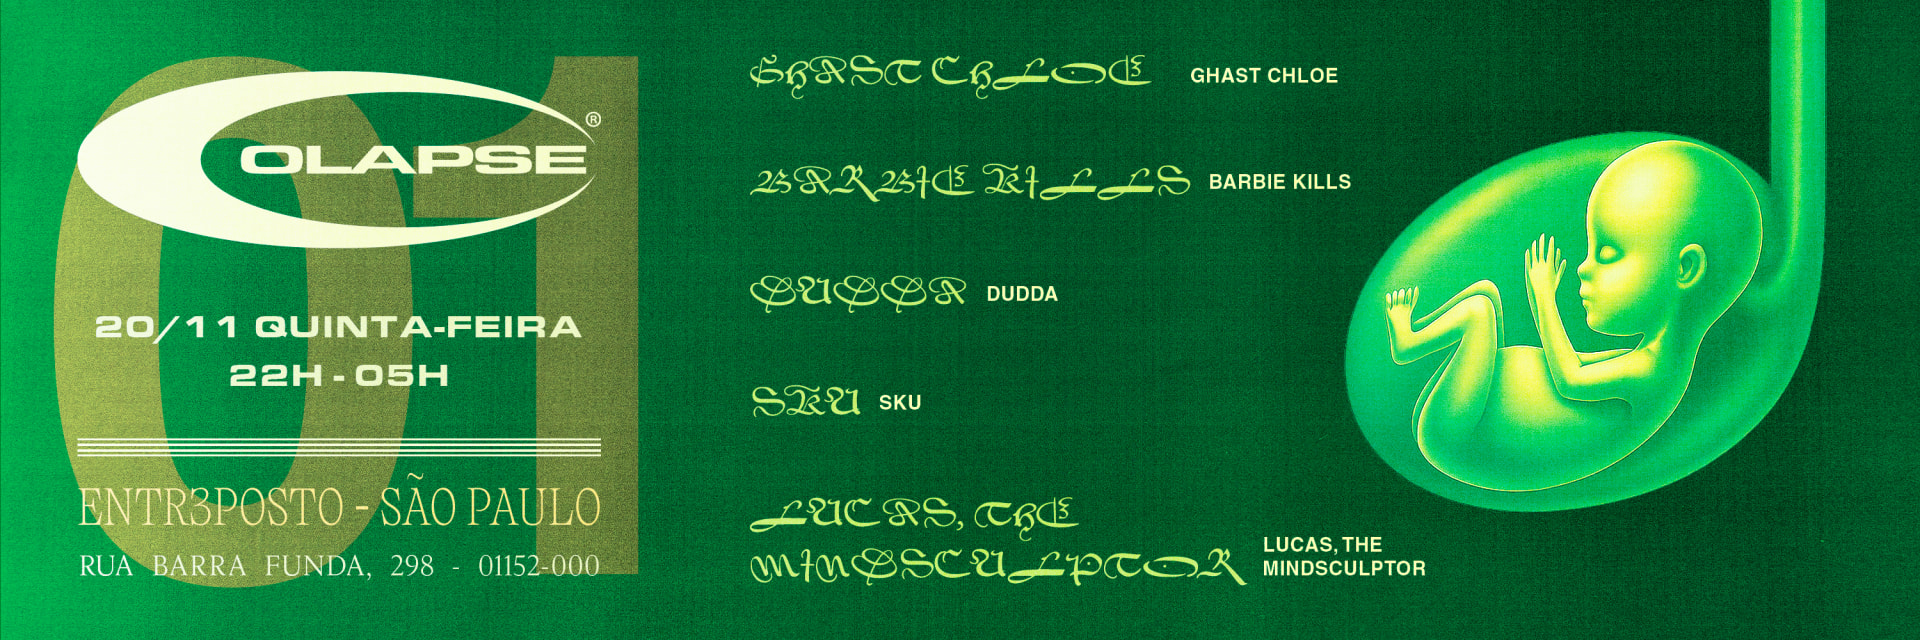 01
COLAPSE®
20/11 QUINTA-FEIRA
22H - 05H
ENTR3POSTO - SÃO PAULO
RUA BARRA FUNDA, 298 - 01152-000
GHAST CHLOE GHAST CHLOE
BARBIE KILLS BARBIE KILLS
DUDDA DUDDA
SKU SKU
LUCAS, THE
MINDSCULPTOR
LUCAS, THE
MINDSCULPTOR